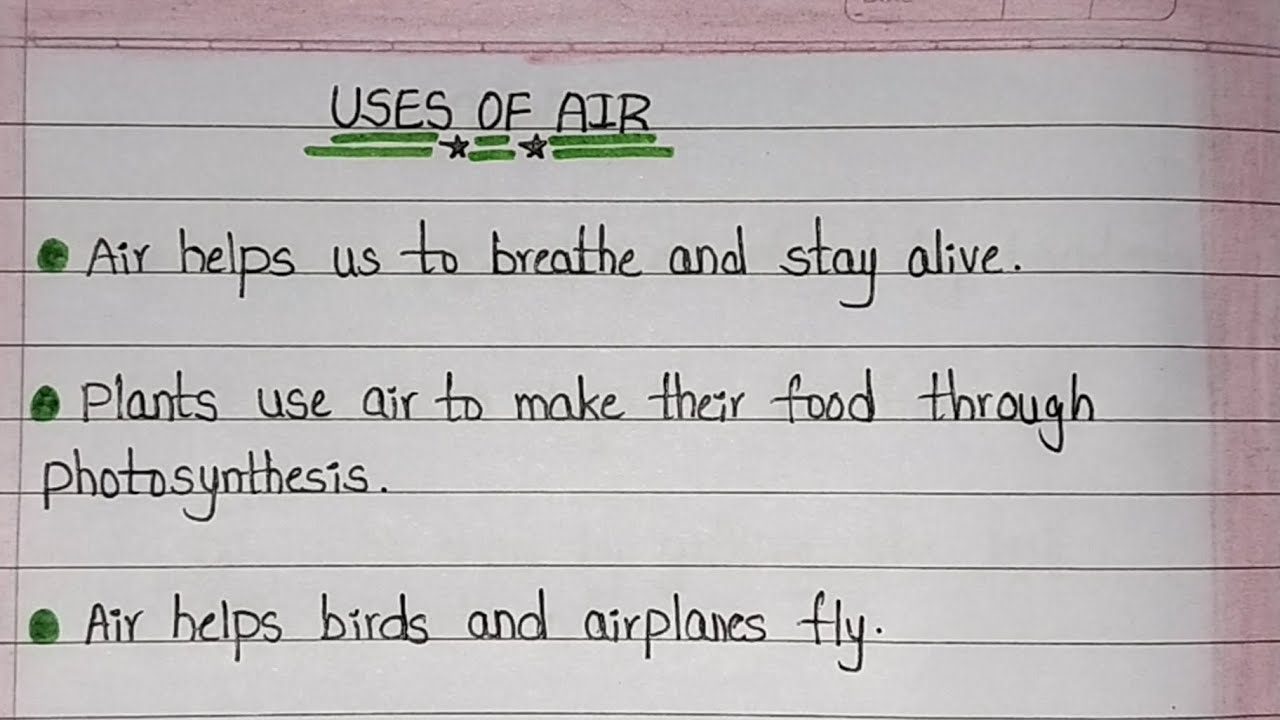 USES OF AIR
Air helps us to breathe and stay alive.
Plants use air to make their food through
photosynthesis.
Air helps birds and airplanes fly.